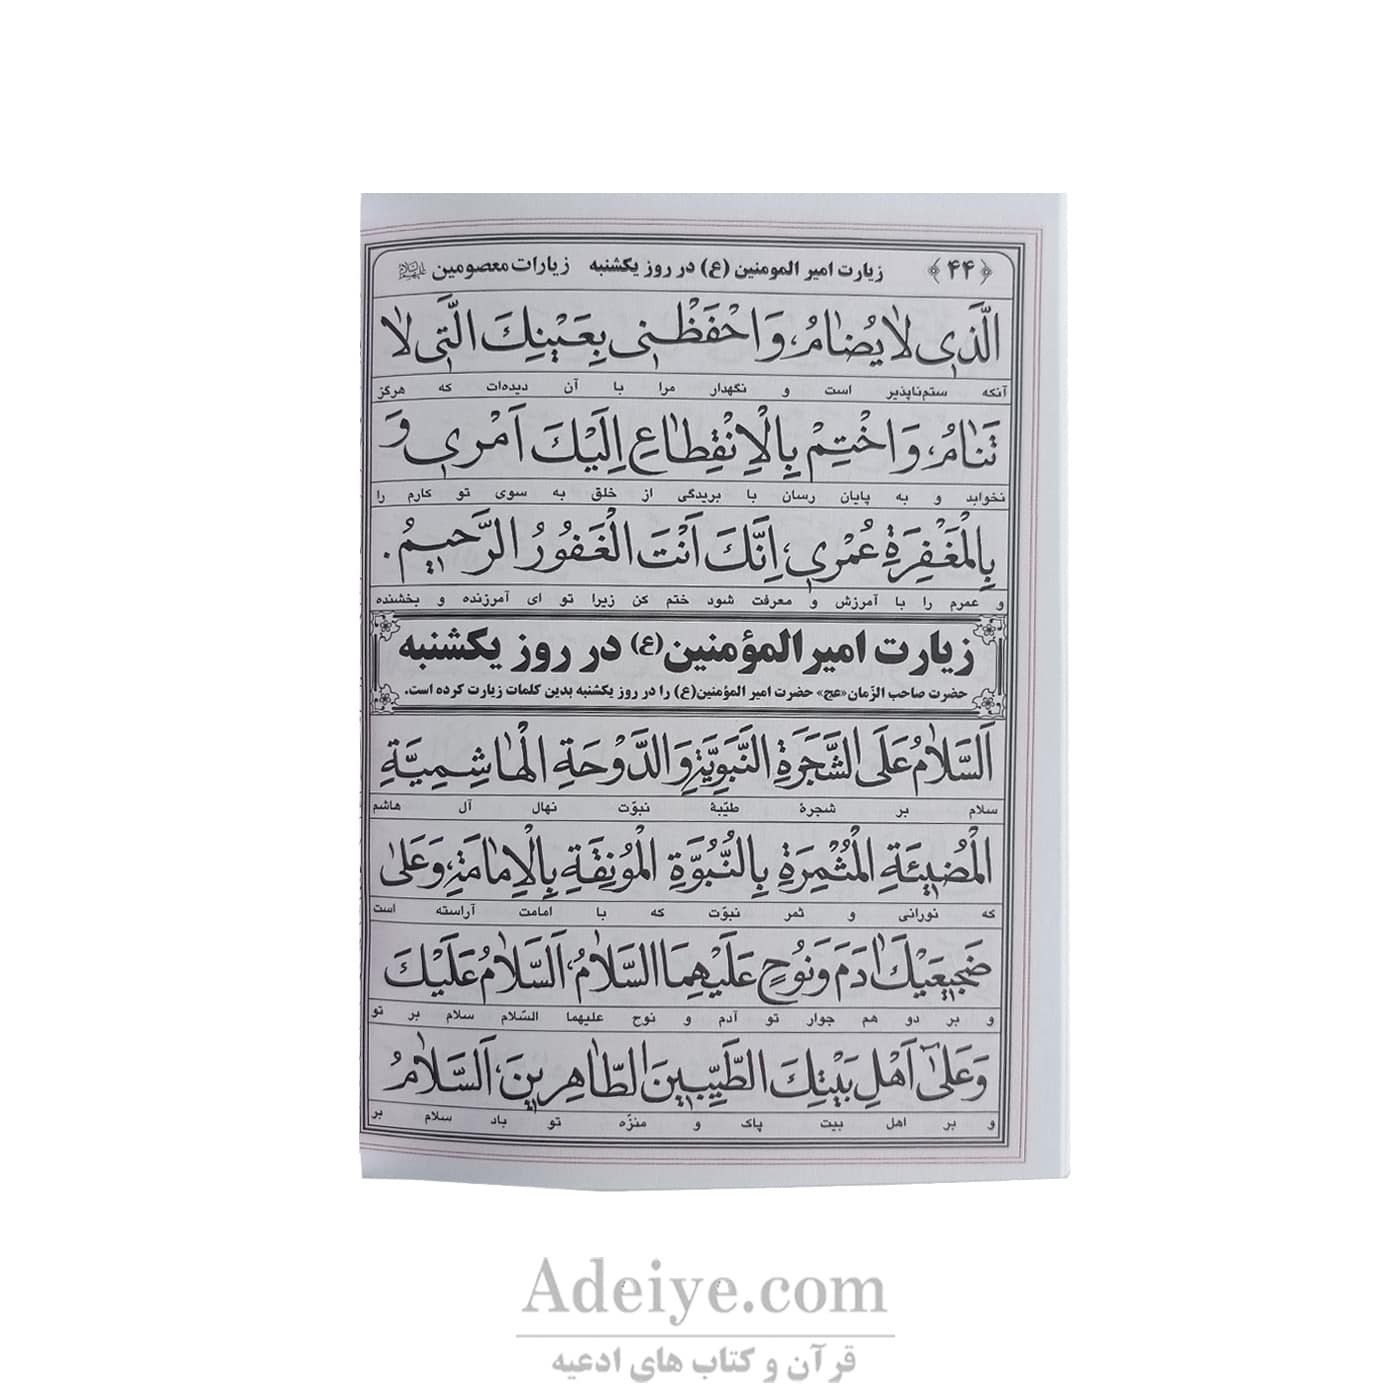 ﴿۴۴﴾ زیارت امیر المومنین (ع) در روز یکشنبه زیارات معصومین علیهم‌السلام
الَّذی لایُضامُ، وَاحْفَظْنی بِعَیْنِكَ الَّتی لا
آنکه ستم‌ناپذیر است و نگهدار مرا با آن دیده‌ات که هرگز
تَنامُ، وَاخْتِمْ بِالْاِنْقِطاعِ اِلَیْكَ اَمْری وَ
نخوابد و به پایان رسان با بریدگی از خلق به سوی تو کارم را
بِالْمَغْفِرَةِ عُمْری، اِنَّكَ اَنْتَ الْغَفُورُ الرَّحیمُ.
و عمرم را با آمرزش و معرفت شود ختم کن زیرا تو ای آمرزنده و بخشنده
زیارت امیرالمؤمنین(ع) در روز یکشنبه
حضرت صاحب الزّمان«عج» حضرت امیر المؤمنین(ع) را در روز یکشنبه بدین کلمات زیارت کرده است.
اَلسَّلامُ عَلَی الشَّجَرَةِ النَّبَوِیَّةِ وَالدَّوْحَةِ الْهاشِمِیَّةِ
سلام بر شجرهٔ طیّبهٔ نبوّت نهال آل هاشم
الْمُضیئَةِ الْمُثْمِرَةِ بِالنُّبُوَّةِ الْمُونِقَةِ بِالْاِمامَةِ، وَعَلی
که نورانی و ثمر نبوّت که با امامت آراسته است
ضَجیعَیْكَ ادَمَ وَنُوحٍ عَلَیْهِمَا السَّلامُ، اَلسَّلامُ عَلَیْكَ
و بر دو هم جوار تو آدم و نوح علیهما السّلام سلام بر تو
وَعَلی اَهْلِ بَیْتِكَ الطَّیِّبینَ الطّاهِرینَ، اَلسَّلامُ
و بر اهل بیت پاک و منزّه تو باد سلام بر
Adeiye.com
قرآن و کتاب های ادعیه